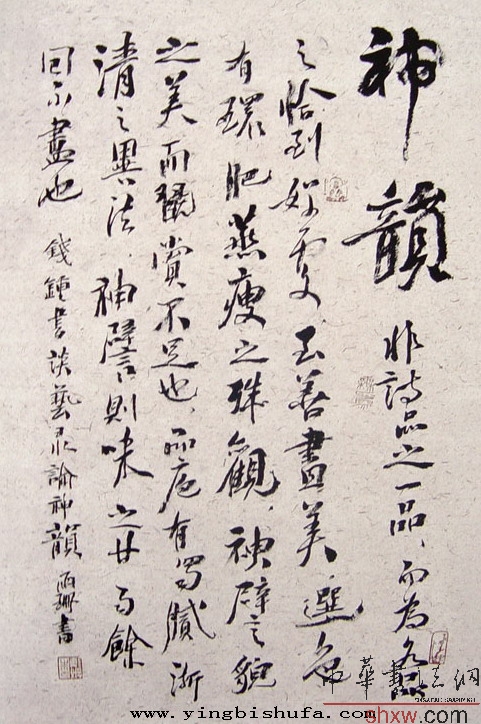 神韻非詩品之一品、而為各品
之恰到好處、至善盡美、選色
有環肥燕瘦之殊觀、神譬貌
之美而翫賞不足也、品庖有蜀膩浙
清之異法、神譬則味之甘而餘
回不盡也 錢鍾書談藝录論神韻 書
中華書法網
shxw.com
www.yingbishufa.com